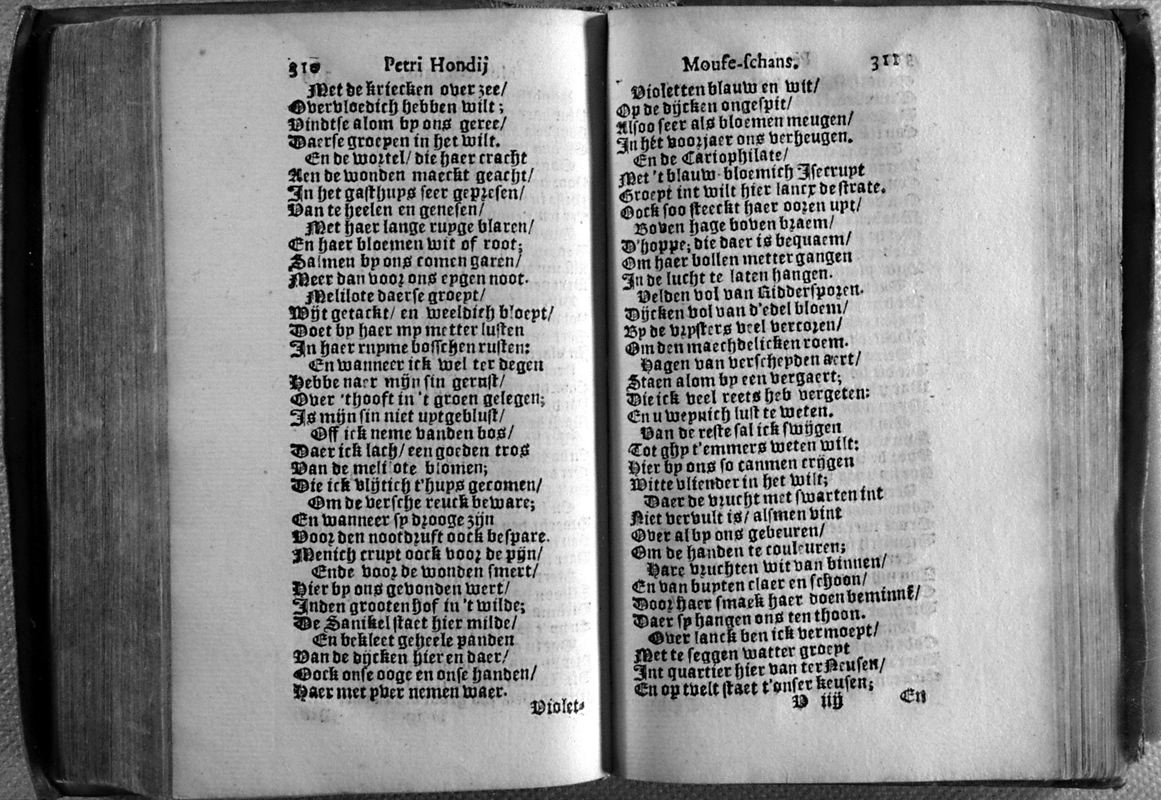 310 Petri Hondij
Met de kriecken over zee/
Overvloedich hebben wilt;
Vindtse alom by ons geree/
Daerse groeyen in het wilt.
En de wortel/ die haer cracht
Aen de wonden maeckt geacht/
In het gasthuys seer gepresen/
Van te heelen en genesen/
Met haer lange ruyge blaren/
En haer bloemen wit of root;
Salmen by ons comen garen/
Meer dan voor ons eygen noot.
Melilote daerse groeyt/
Wijt getackt/ en weeldich bloeyt/
Doet by haer my metter lusten
In haer ruyme bosschen rusten:
En wanneer ick wel ter degen
Hebbe naer mijn sin gerust/
Over 'thooft in 't groen gelegen;
Is mijn sin niet uytgeblust/
Off ick neme vanden bos/
Daer ick lach/ een goeden tros
Van de melilote blomen;
Die ick vlijtich t'huys gecomen/
Om de versche reuck beware;
En wanneer sy drooge zijn
Voor den nootdruft oock bespare.
Menich cruyt oock voor de pijn/
Ende voor de wonden smert/
Hier by ons gevonden wert/
Inden grooten hof in 't wilde;
De Sanikel staet hier milde/
En bekleet geheele panden
Van de dijcken hier en daer/
Oock onse ooge en onse handen/
Haer met yver nemen waer.
Violet-
Mouse-schans. 311
Violetten blauw en wit/
Op de dijcken ongespit/
Alsoo seer als bloemen meugen/
In het voorjaer ons verheugen.
En de Cariophilate/
Met 't blauw-bloemich Isecruyt
Groeyt int wilt hier lancx de strate.
Oock soo steeckt haer ooren uyt/
Boven hage boven braem/
D'hoppe; die daer is bequaem/
Om haer bollen metter gangen
In de lucht te laten hangen.
Velden vol van Riddersporen.
Dijcken vol van d'edel bloem/
By de vrysters veel vercoren/
Om den maechdelicken roem.
Hagen van verscheyden aert/
Staen alom by een vergaert;
Die ick veel reets heb vergeten:
En u weynich lust te weten.
Van de reste sal ick swijgen
Tot ghy t'emmers weten wilt:
Hier by ons so canmen crijgen
Witte vliender in het wilt;
Daer de vrucht met swarten int
Niet vervult is/ alsmen vint
Over al by ons gebeuren/
Om de handen te couleuren;
Hare vruchten wit van binnen/
En van buyten claer en schoon/
Door haer smaek haer doen beminnē/
Daer sy hangen ons ten thoon.
Over lanck ben ick vermoeyt/
Met te seggen watter groeyt
Int quartier hier van ter Neusen/
En op tvelt staet t'onser keusen;
V iiij En